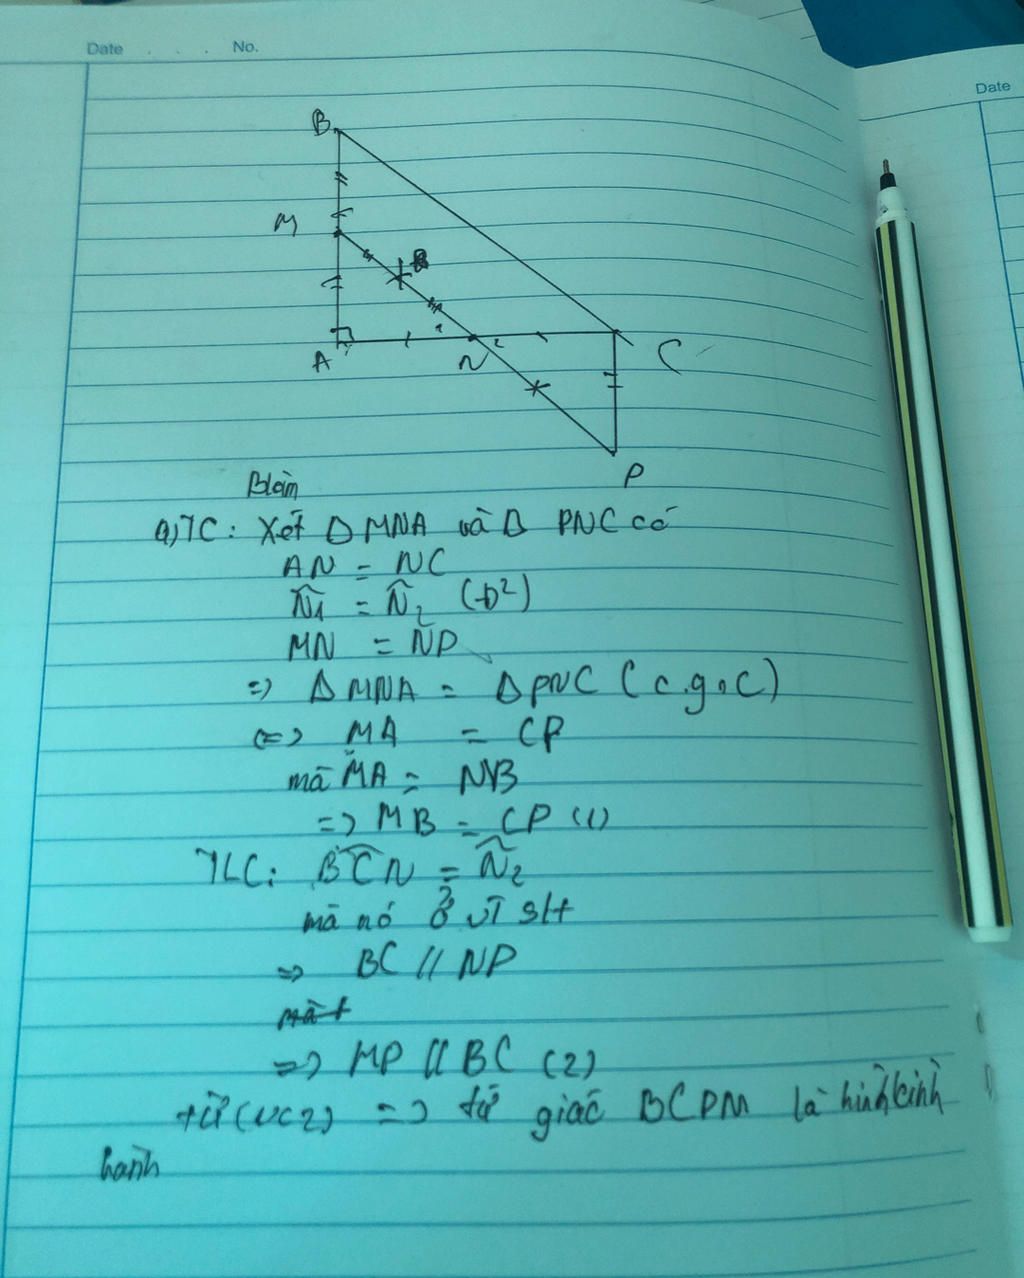 Date . . . No.
Date
B
M
A
N
C
P
Blàm
a) TC: Xét Δ MNA và Δ PNC có
AN = NC
N̂1 = N̂2 (đ²)
MN = NP
=> Δ MNA = Δ PNC (c.g.c)
(=> MA = CP
mà MA = MB
=> MB = CP (1)
TLC: BCN = N̂2
mà nó ở vĩ slt
=> BC // NP
=> MP // BC (2)
từ (1)(2) => tứ giác BCPM là hình bình
hành